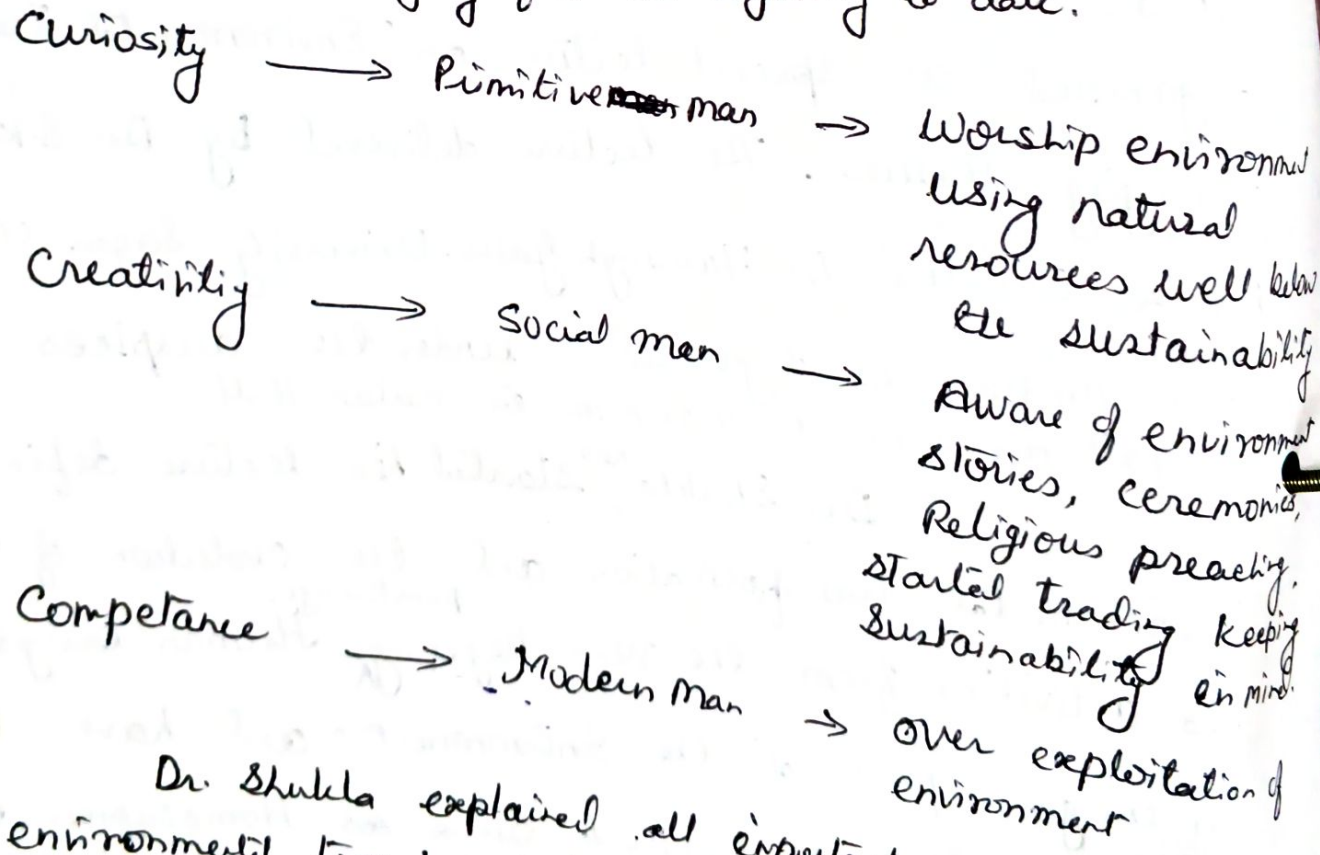 to date.
Curiosity → Pimitive man → Worship environmet
using natural
resources well below
the sustainability
Creativitiy → Social man → Aware of environment
stories, ceremonies,
Religious preaching.
started trading keeping
Sustainability in mind.
Competance → Modern Man → over exploitation of
environment
Dr. Shukla explained all